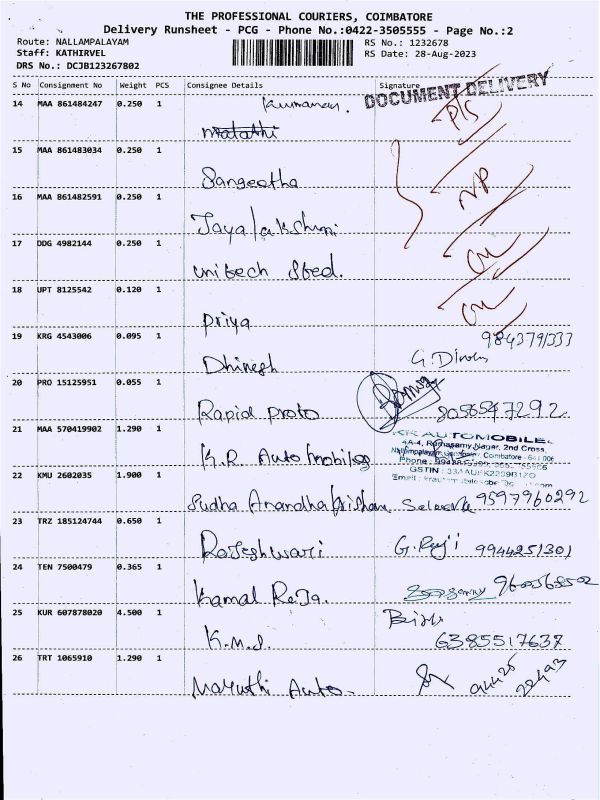 THE PROFESSIONAL COURIERS, COIMBATORE
Delivery Runsheet - PCG - Phone No.:0422-3505555 - Page No.:2
Route: NALLAMPALAYAM RS No.: 1232678
Staff: KATHIRVEL RS Date: 28-Aug-2023
DRS No.: DCJB123267802
S No Consignment No Weight PCS Consignee Details Signature
DOCUMENT DELIVERY
14 MAA 861484247 0.250 1
15 MAA 861483034 0.250 1
Sangeetha
16 MAA 861482591 0.250 1
Jayalakshmi
17 DDG 4982144 0.250 1
unitech Steel.
18 UPT 8125542 0.120 1
Priya
19 KRG 4543006 0.095 1 984379/333
Dhinesh
20 PRO 15125951 0.055 1
Rapid Proto 8056547292
21 MAA 570419902 1.290 1
KK AUTOMOBILE
4A-4, Ramasamy Nagar, 2nd Cross,
K.R. Automobiles
22 KMU 2602035 1.900 1
Sudha Anandhakrishnan 9597960292
23 TRZ 185124744 0.650 1
Rajeshwari G. Raji 9944251301
24 TEN 7500479 0.365 1
Kamal Raja.
25 KUR 607878020 4.500 1
K.M.S. 6385517637
26 TRT 1065910 1.290 1
Maruthi Auto